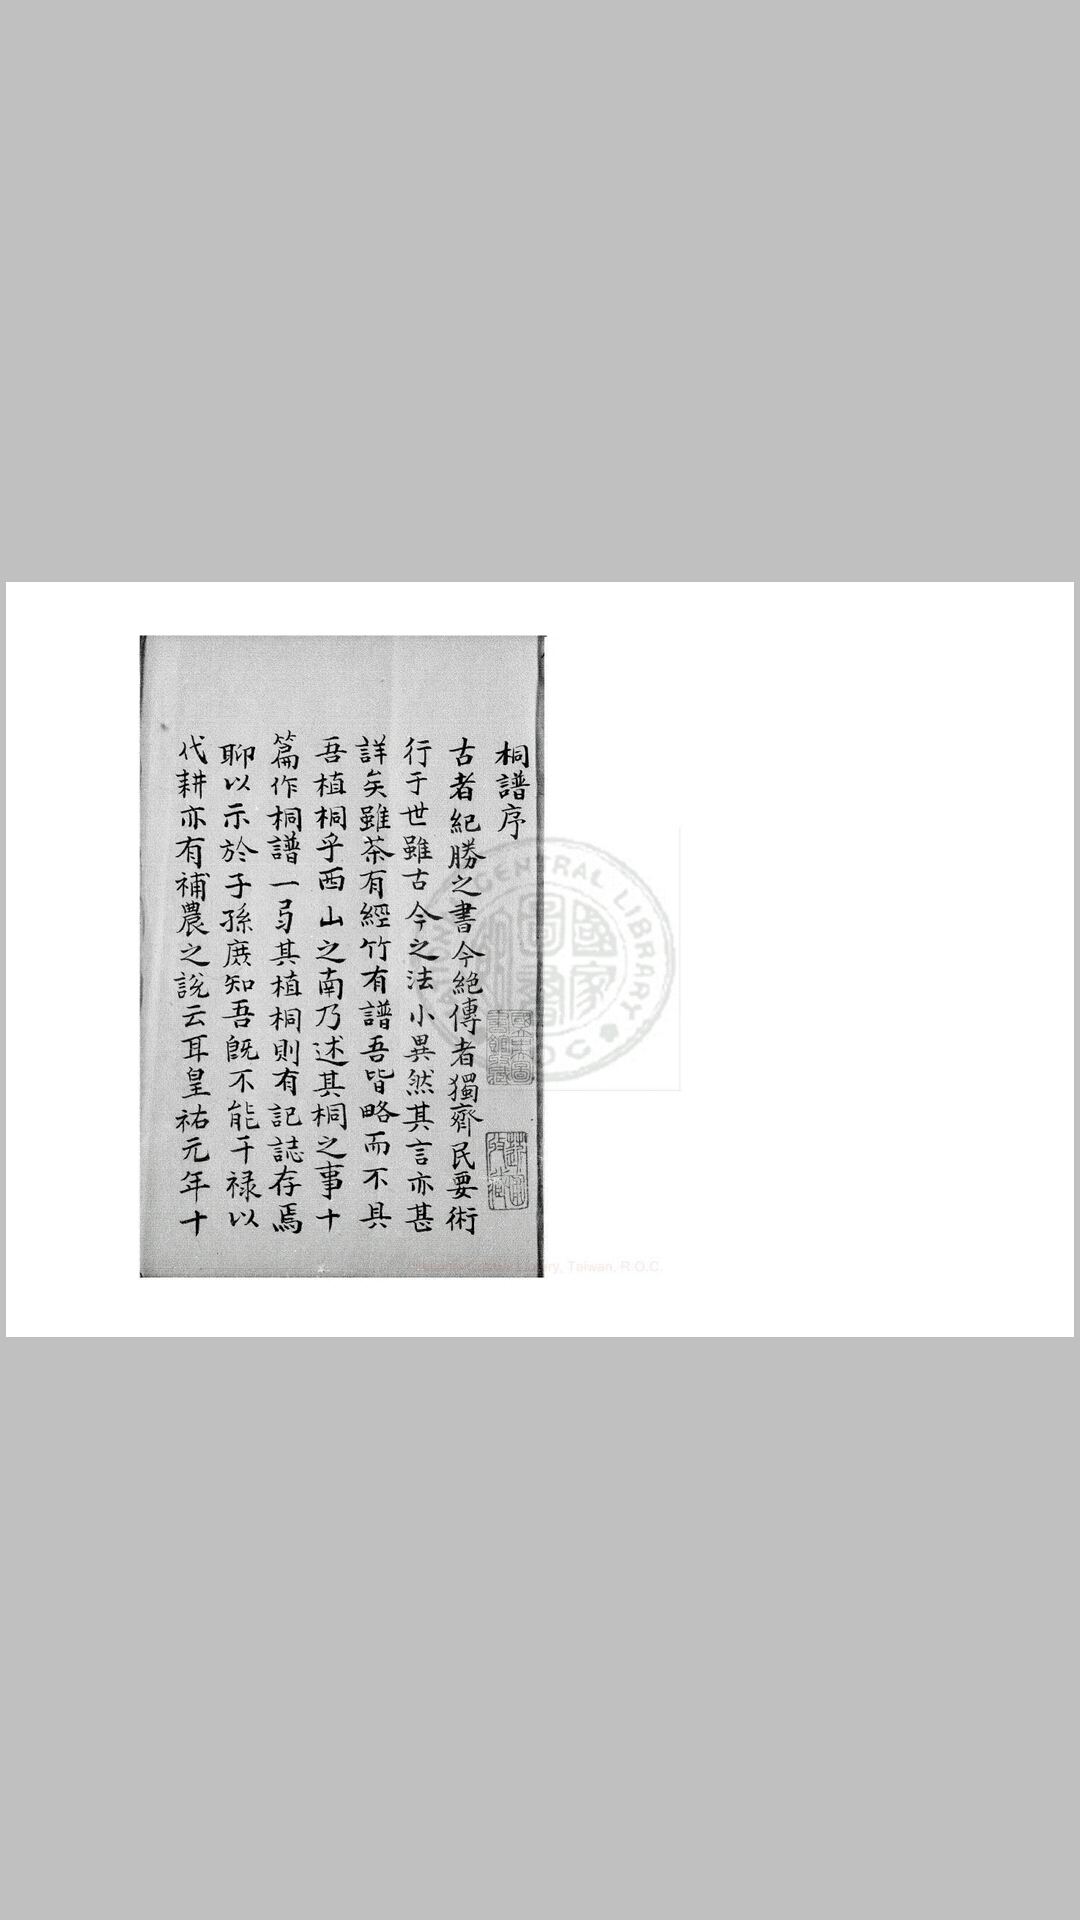 桐譜序
古者紀勝之書今絕傳者獨齊民要術
行于世雖古今之法小異然其言亦甚
詳矣雖茶有經竹有譜吾皆略而不具
吾植桐乎西山之南乃述其桐之事十
篇作桐譜一弓其植桐則有記誌存焉
聊以示於子孫庶知吾既不能干祿以
代耕亦有補農之說云耳皇祐元年十
國家圖書
CENTRAL LIBRARY
ROC
Library, Taiwan, R.O.C.